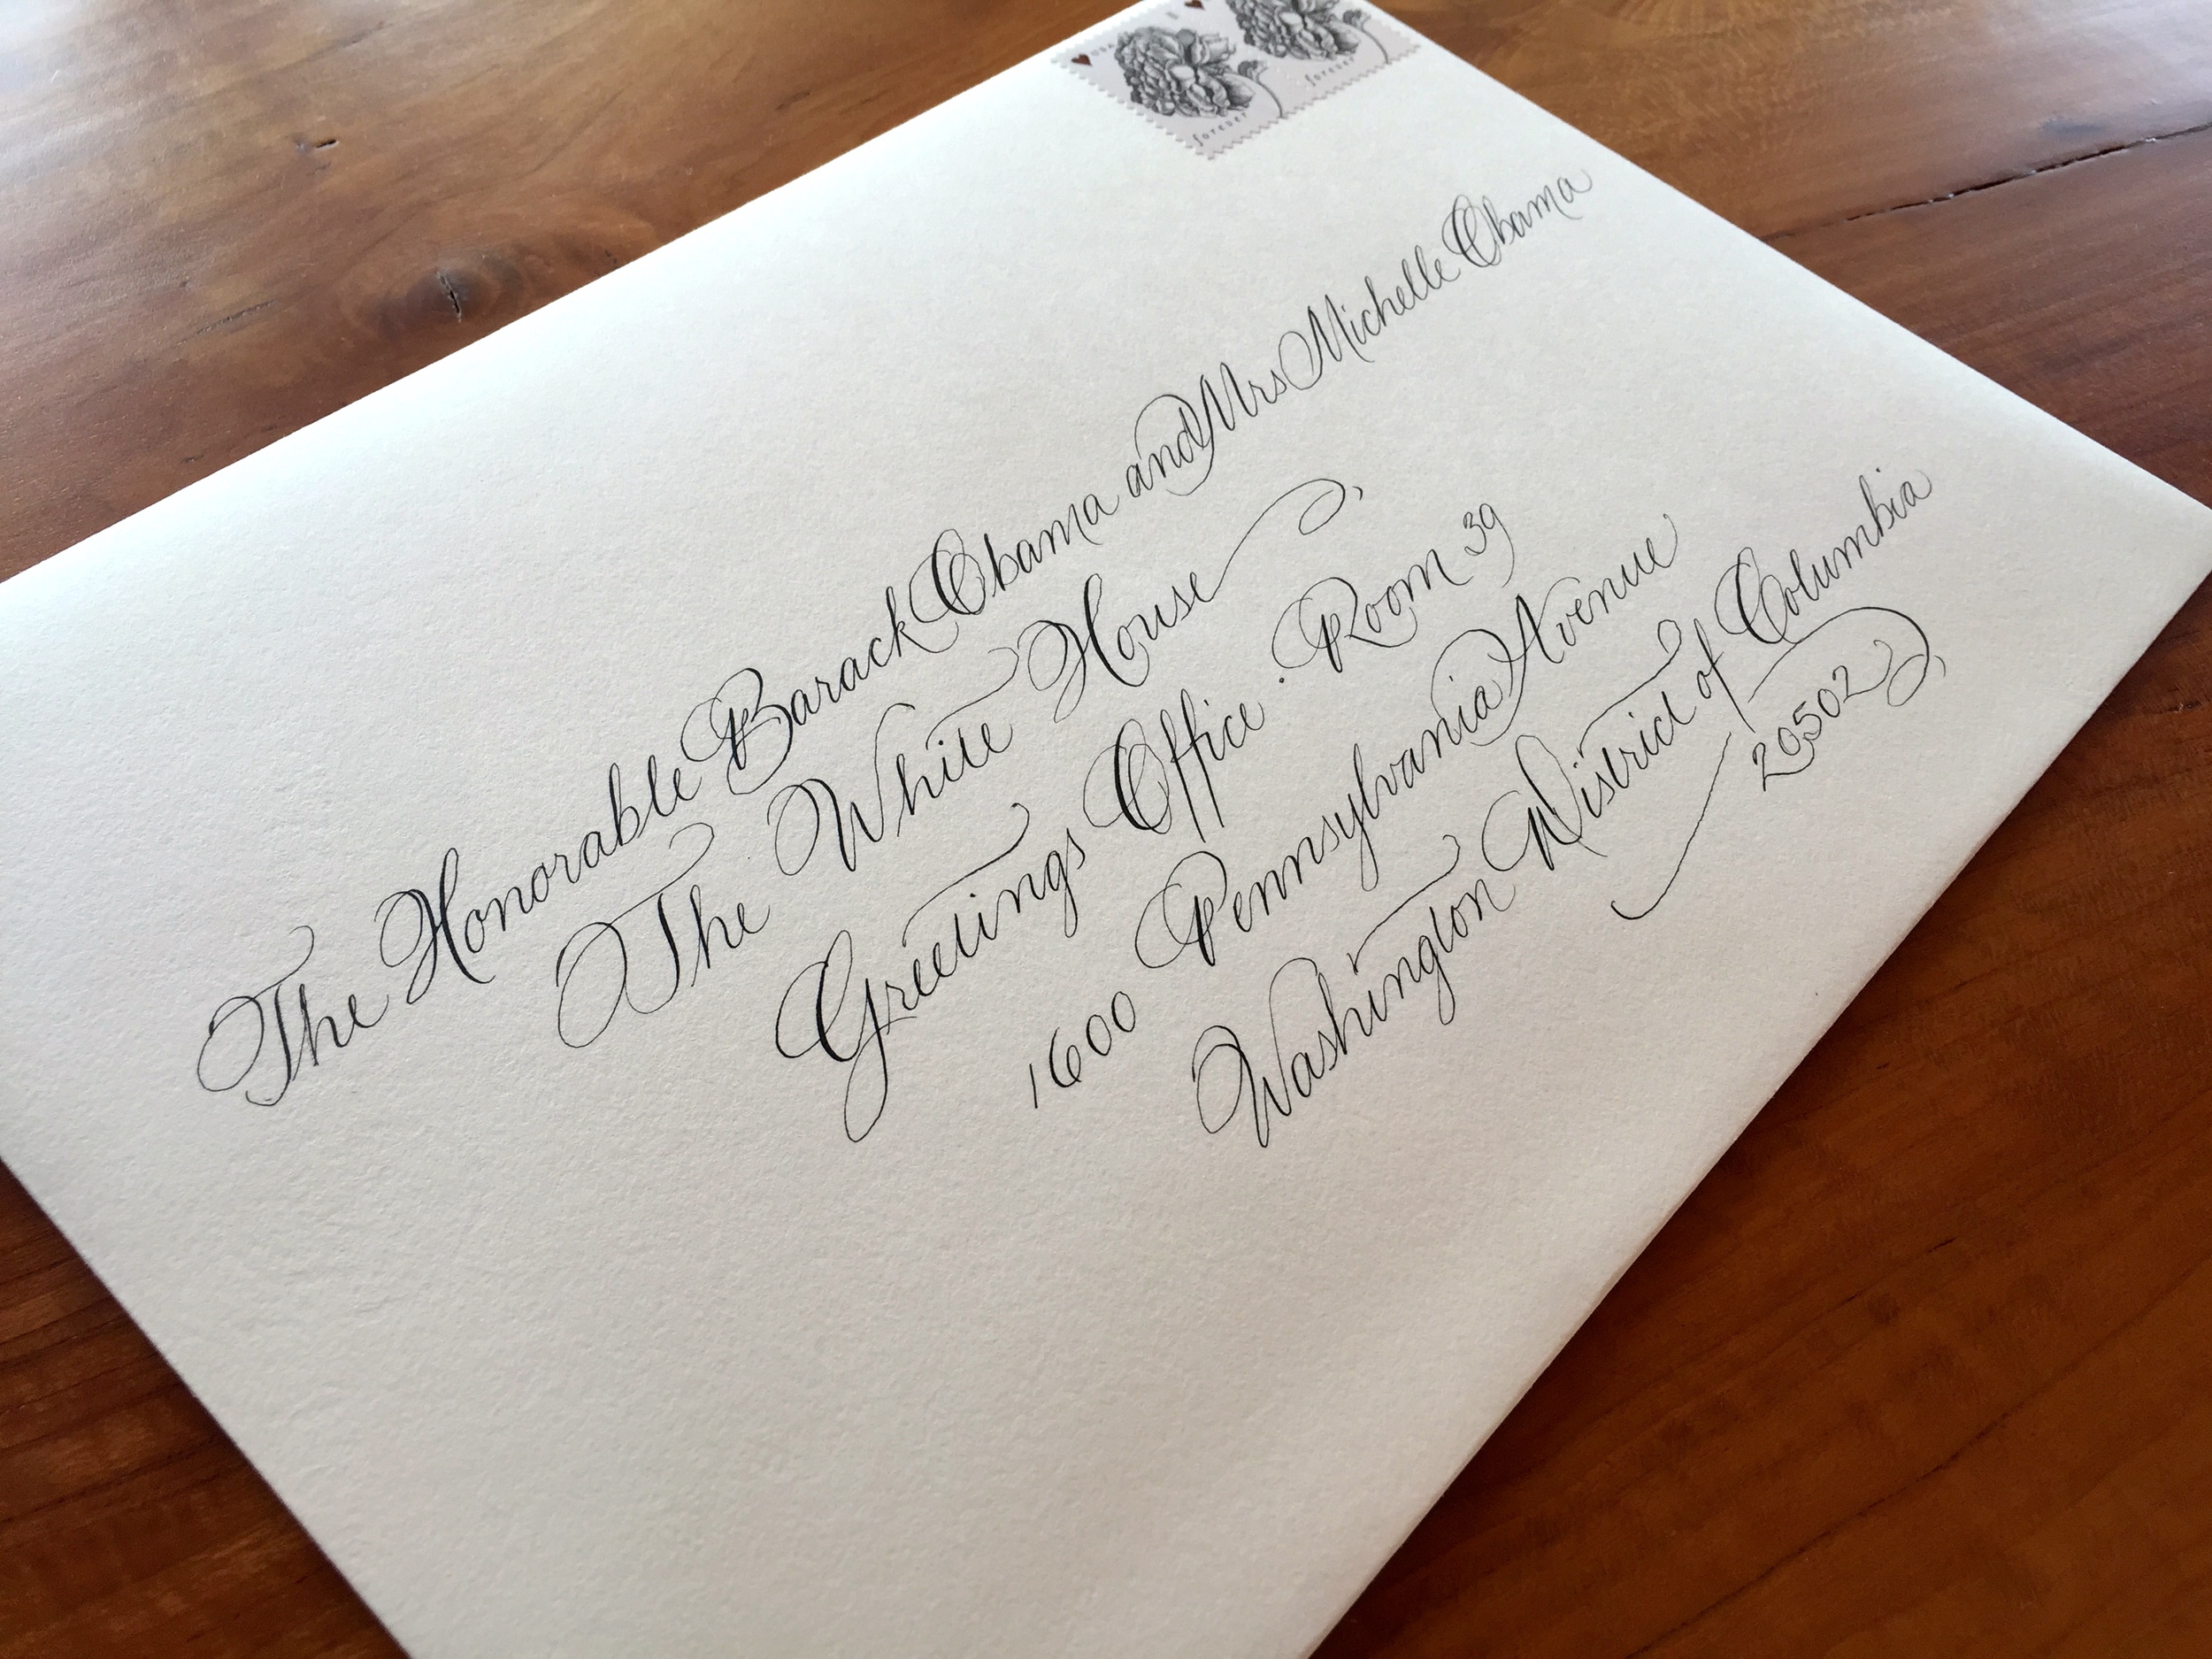 USA
forever
forever
The Honorable Barack Obama and Mrs Michelle Obama
The White House
Greetings Office · Room 39
1600 Pennsylvania Avenue
Washington District of Columbia
20502